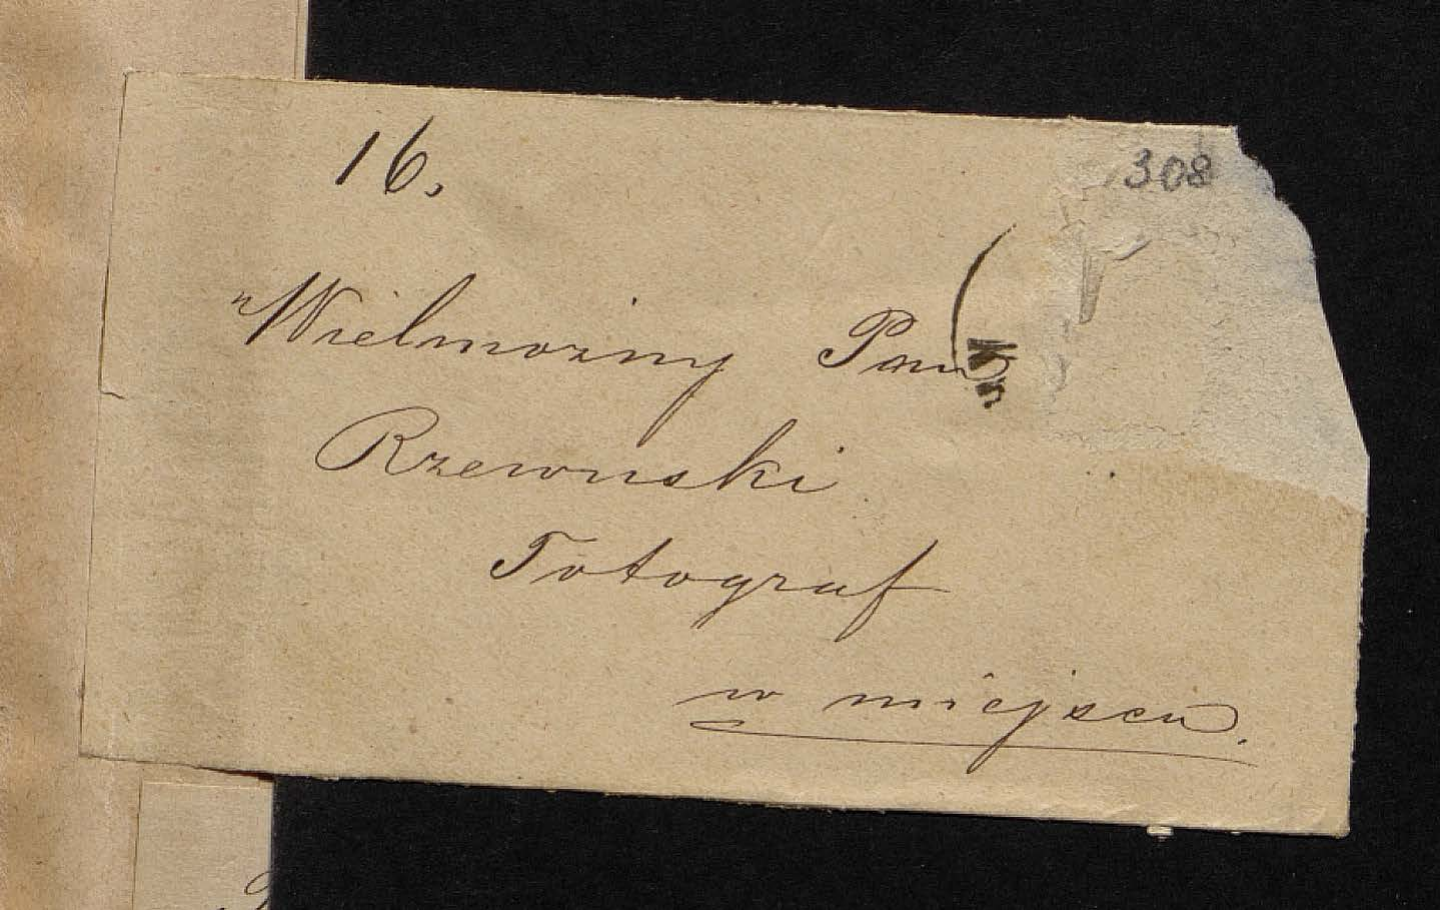 16.
308
Wielmożny Pan
Rzewuski
Fotograf
w miejscu.